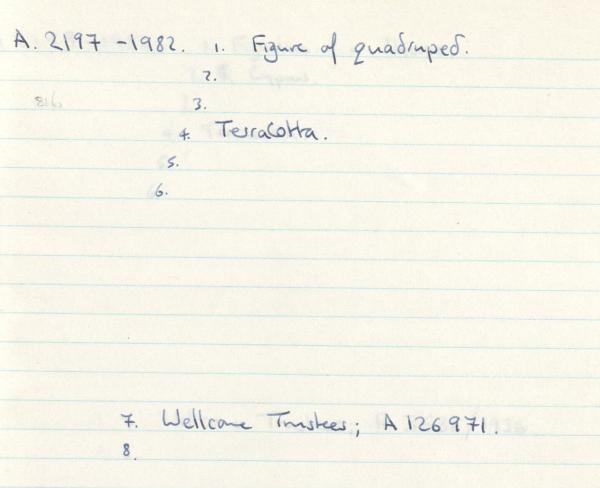 A. 2197 - 1982. 1. Figure of quadruped.
2.
3.
4. Terracotta.
5.
6.
7. Wellcome Trustees; A 126971.
8.